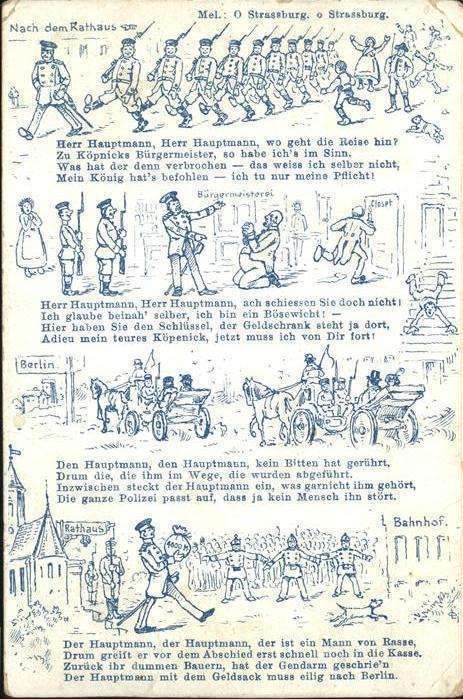 Mel.: O Strassburg, o Strassburg.
Nach dem Rathaus
Herr Hauptmann, Herr Hauptmann, wo geht die Reise hin?
Zu Köpnicks Bürgermeister, so habe ich's im Sinn.
Was hat der denn verbrochen — das weiss ich selber nicht,
Mein König hat's befohlen — ich tu nur meine Pflicht!
Bürgermeisterei
Closet
Herr Hauptmann, Herr Hauptmann, ach schiessen Sie doch nicht!
Ich glaube beinah' selber, ich bin ein Bösewicht! —
Hier haben Sie den Schlüssel, der Geldschrank steht ja dort,
Adieu mein teures Köpenick, jetzt muss ich von Dir fort!
Berlin
Den Hauptmann, den Hauptmann, kein Bitten hat gerührt,
Drum die, die ihm im Wege, die wurden abgeführt.
Inzwischen steckt der Hauptmann ein, was garnicht ihm gehört,
Die ganze Polizei passt auf, dass ja kein Mensch ihn stört.
Rathaus
Bahnhof.
Der Hauptmann, der Hauptmann, der ist ein Mann von Rasse,
Drum greift er vor dem Abschied erst schnell noch in die Kasse.
Zurück ihr dummen Bauern, hat der Gendarm geschrie'n
Der Hauptmann mit dem Geldsack muss eilig nach Berlin.